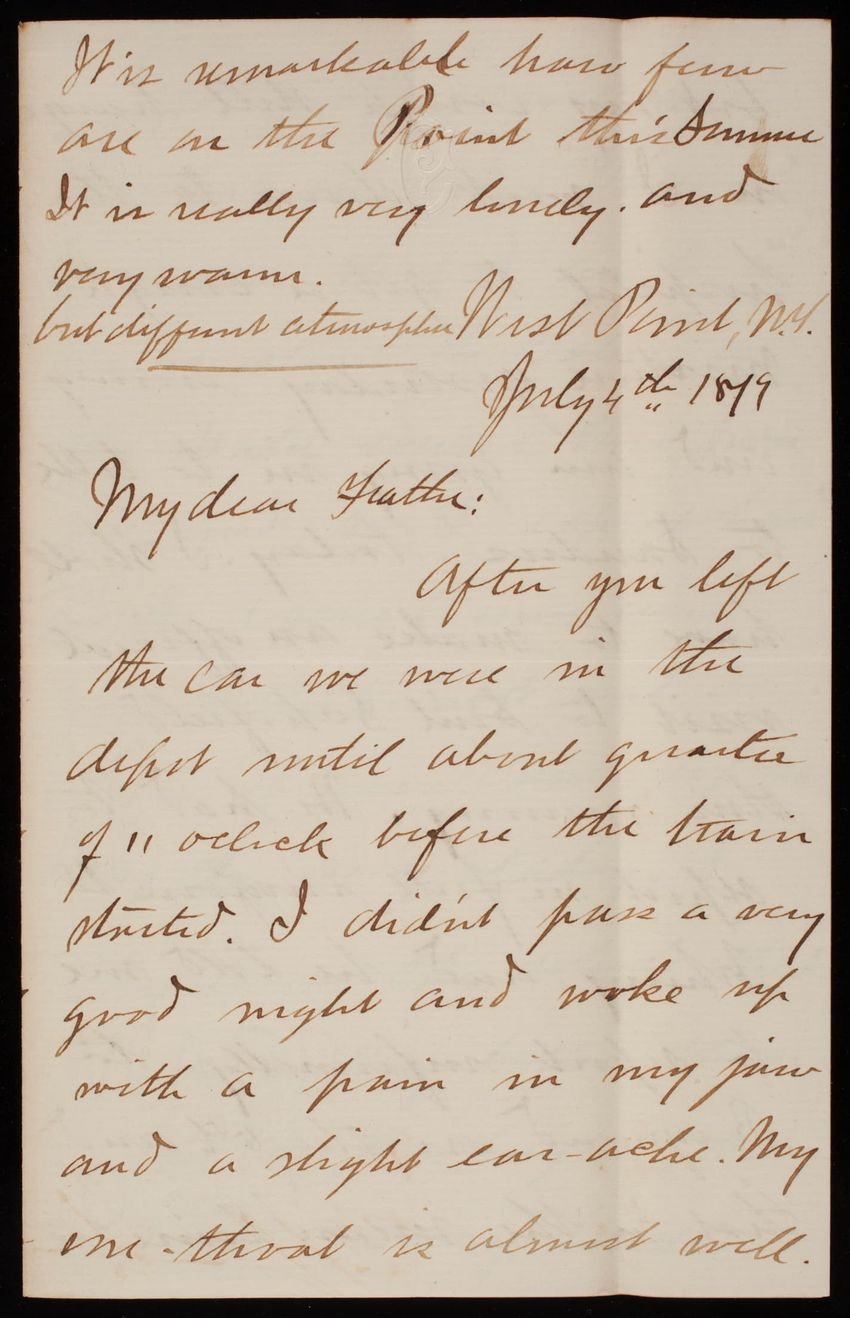 It is remarkable how few
are on the Point this Summer
It is really very lonely. and
very warm.
but different atmosphere
West Point, N.Y.
July 4th 1879
My dear Father:
After you left
the car we were in the
depot until about quarter
of 11 oclock before the train
started. I didn't pass a very
good night and woke up
with a pain in my jaw
and a slight ear-ache. My
-throat is almost well.